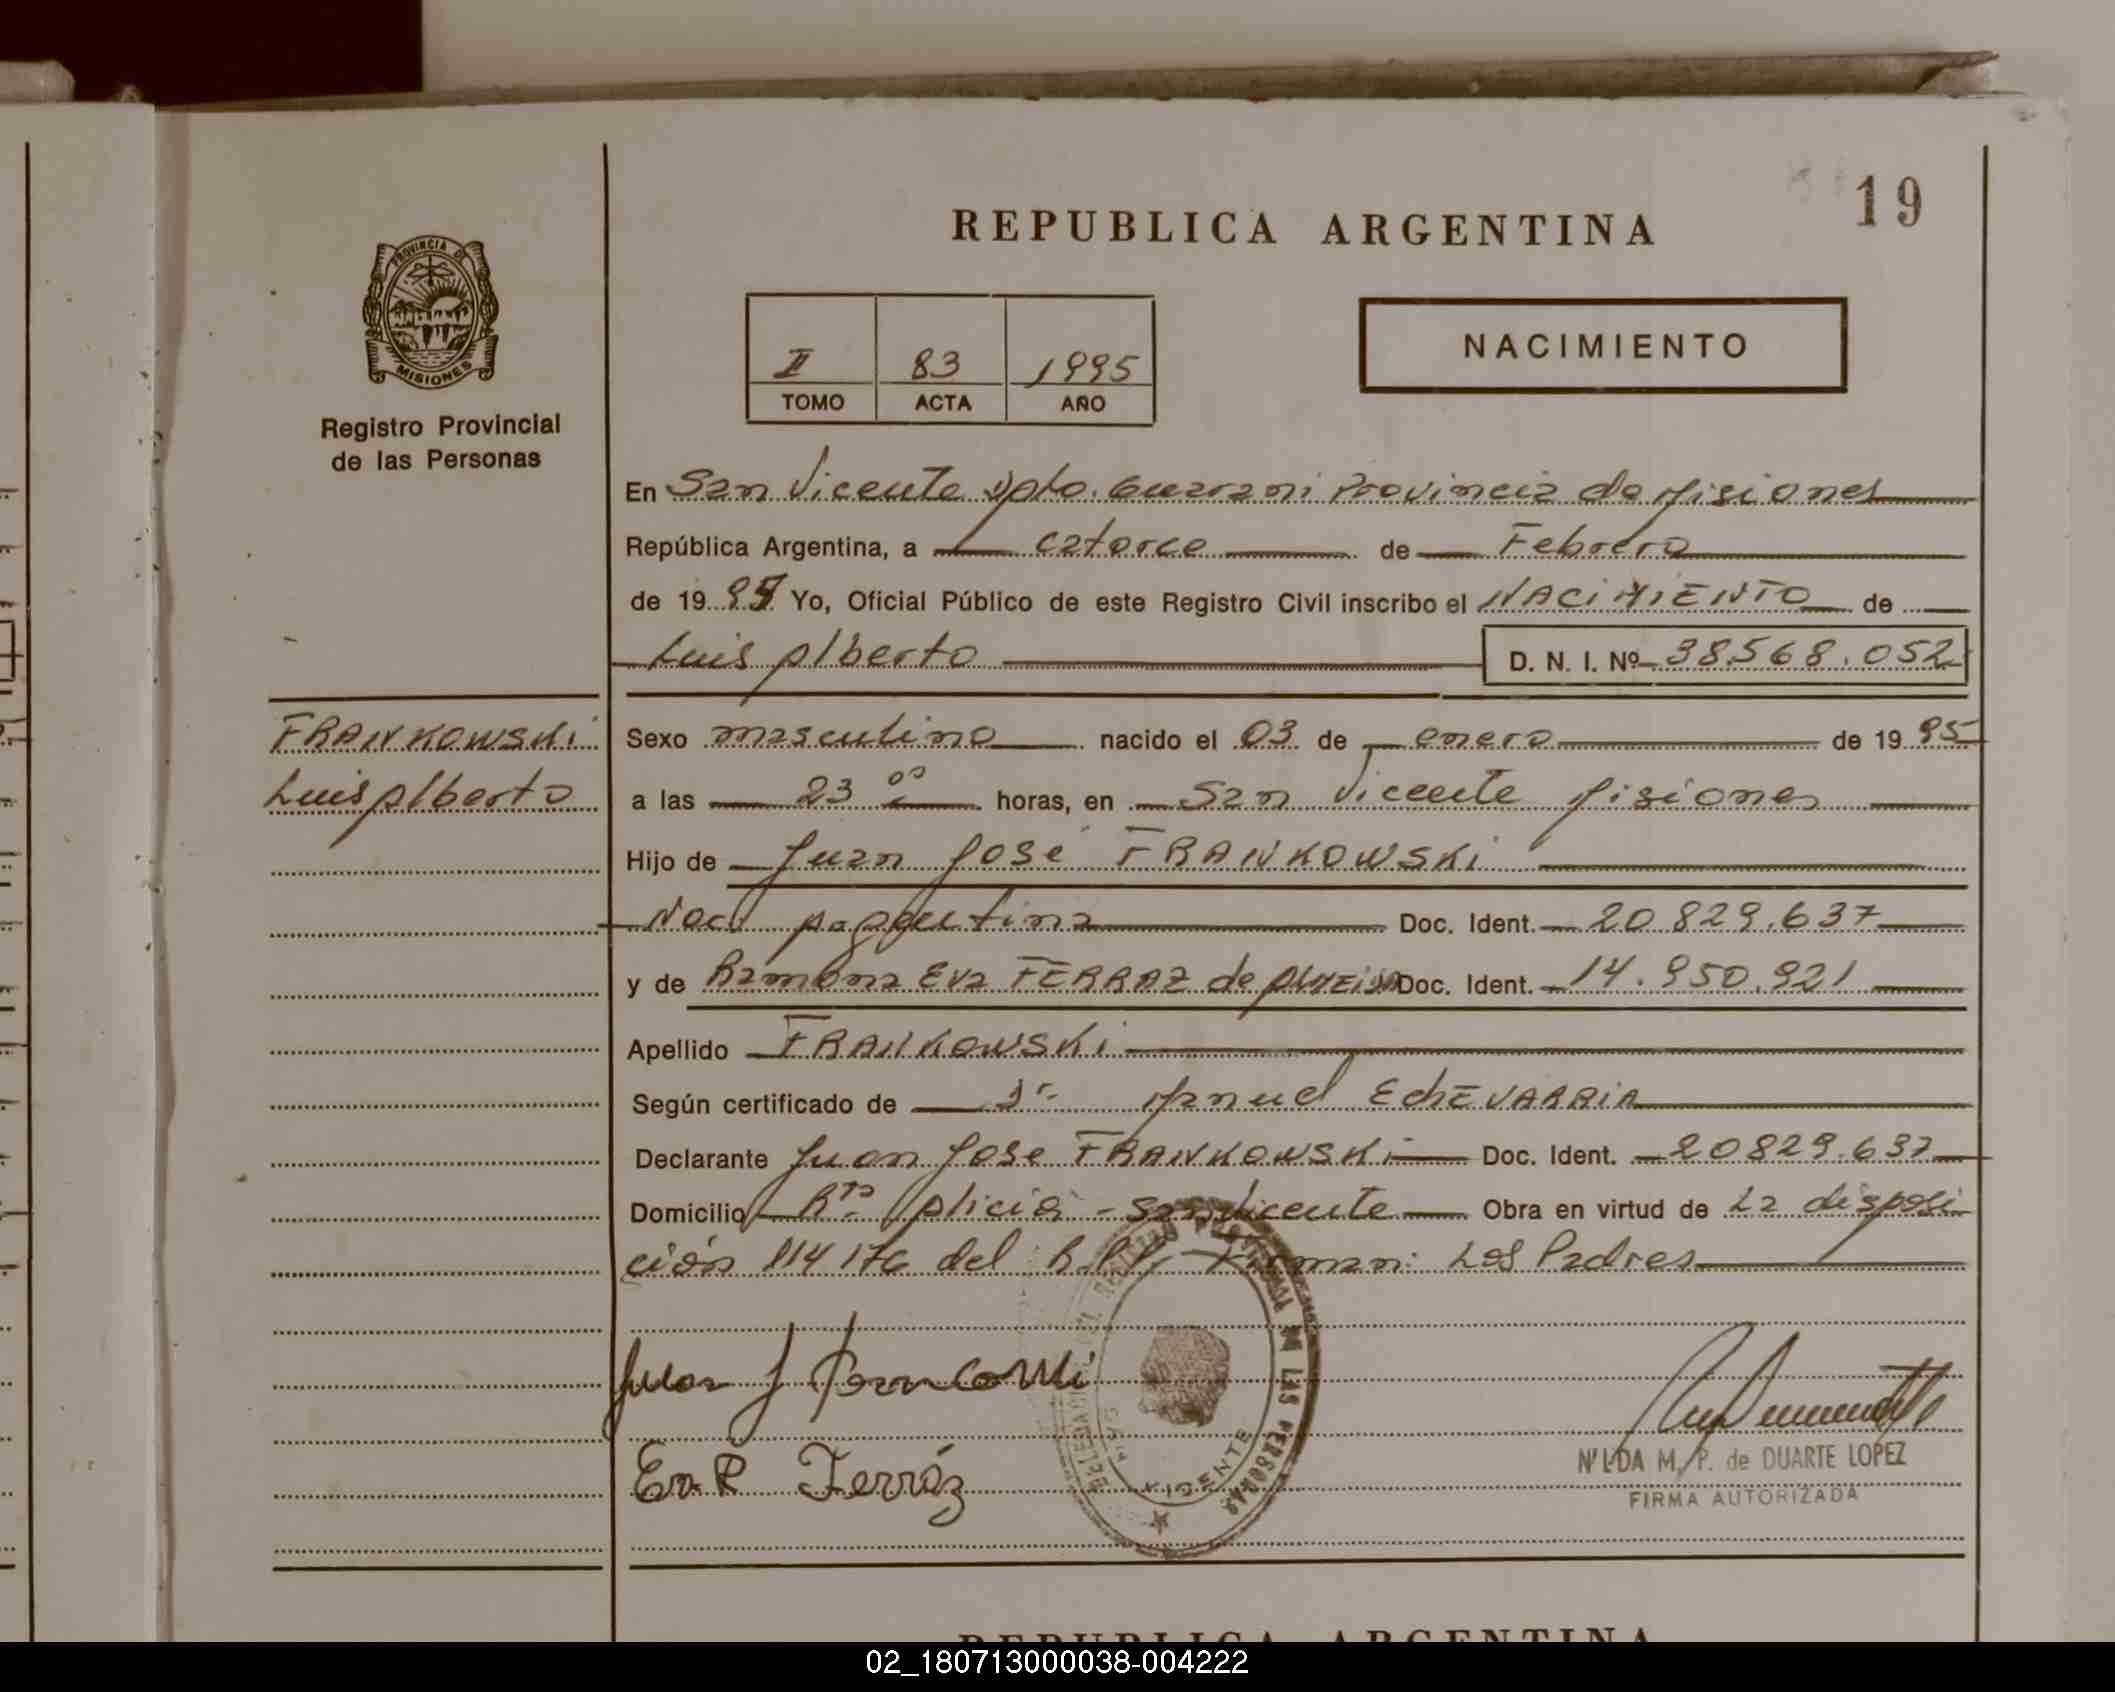 19
REPUBLICA ARGENTINA
PROVINCIA DE
MISIONES
Registro Provincial
de las Personas
II 83 1995
TOMO ACTA AÑO
NACIMIENTO
En San Vicente Dpto. Guarani Provincia de Misiones
República Argentina, a catorce de Febrero
de 1995 Yo, Oficial Público de este Registro Civil inscribo el NACIMIENTO de
Luis Alberto D. N. I. Nº 38.568.052
FRANKOWSKi
Luis Alberto
Sexo masculino nacido el 03 de enero de 1995
a las 23 00 horas, en San Vicente Misiones
Hijo de Juan Jose FRANKOWSKi
Nac. Argentina Doc. Ident. 20829.637
y de Ramona Eva FERRAZ de ALMEIDA Doc. Ident. 14.950.921
Apellido FRANKOWSKi
Según certificado de Dr. Manuel EchEVARRIA
Declarante Juan Jose FRANKOWSKi Doc. Ident. 20829.637
Domicilio Alicia - San Vicente Obra en virtud de La disposi
ción 114 176 del R.P.P. Firman: Los Padres
DELEGACION REGISTRO PROVINCIAL DE LAS PERSONAS
SAN VICENTE
Juan J
Eva R Ferráz
NILDA M. P. de DUARTE LOPEZ
FIRMA AUTORIZADA
REPUBLICA ARGENTINA
02_180713000038-004222